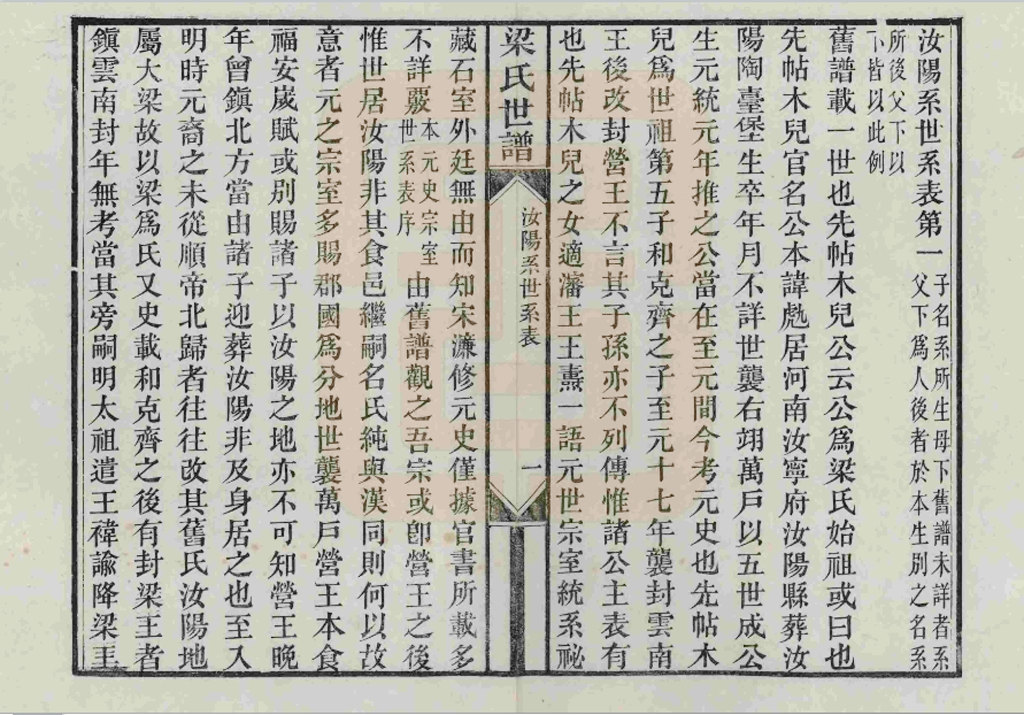 汝陽系世系表第一子名系所生母下舊譜未詳者系
父下爲人後者於本生別之名系
所後父下以
下皆以此例
舊譜載一世也先帖木兒公云公爲梁氏始祖或曰也
先帖木兒官名公本諱彪居河南汝寧府汝陽縣葬汝
陽陶臺堡生卒年月不詳世襲右翊萬戶以五世成公
生元統元年推之公當在至元間今考元史也先帖木
兒爲世祖第五子和克齊之子至元十七年襲封雲南
王後改封營王不言其子孫亦不列傳惟諸公主表有
也先帖木兒之女適瀋王王燾一語元世宗室統系祕
梁氏世譜
汝陽系世系表
一
藏石室外廷無由而知宋濂修元史僅據官書所載多
不詳覈本元史宗室
世系表序
由舊譜觀之吾宗或卽營王之後
惟世居汝陽非其食邑繼嗣名氏純與漢同則何以故
意者元之宗室多賜郡國爲分地世襲萬戶營王本食
福安歲賦或別賜諸子以汝陽之地亦不可知營王晚
年曾鎭北方當由諸子迎葬汝陽非及身居之也至入
明時元裔之未從順帝北歸者往往改其舊氏汝陽地
屬大梁故以梁爲氏又史載和克齊之後有封梁王者
鎭雲南封年無考當其旁嗣明太祖遣王褘諭降梁王